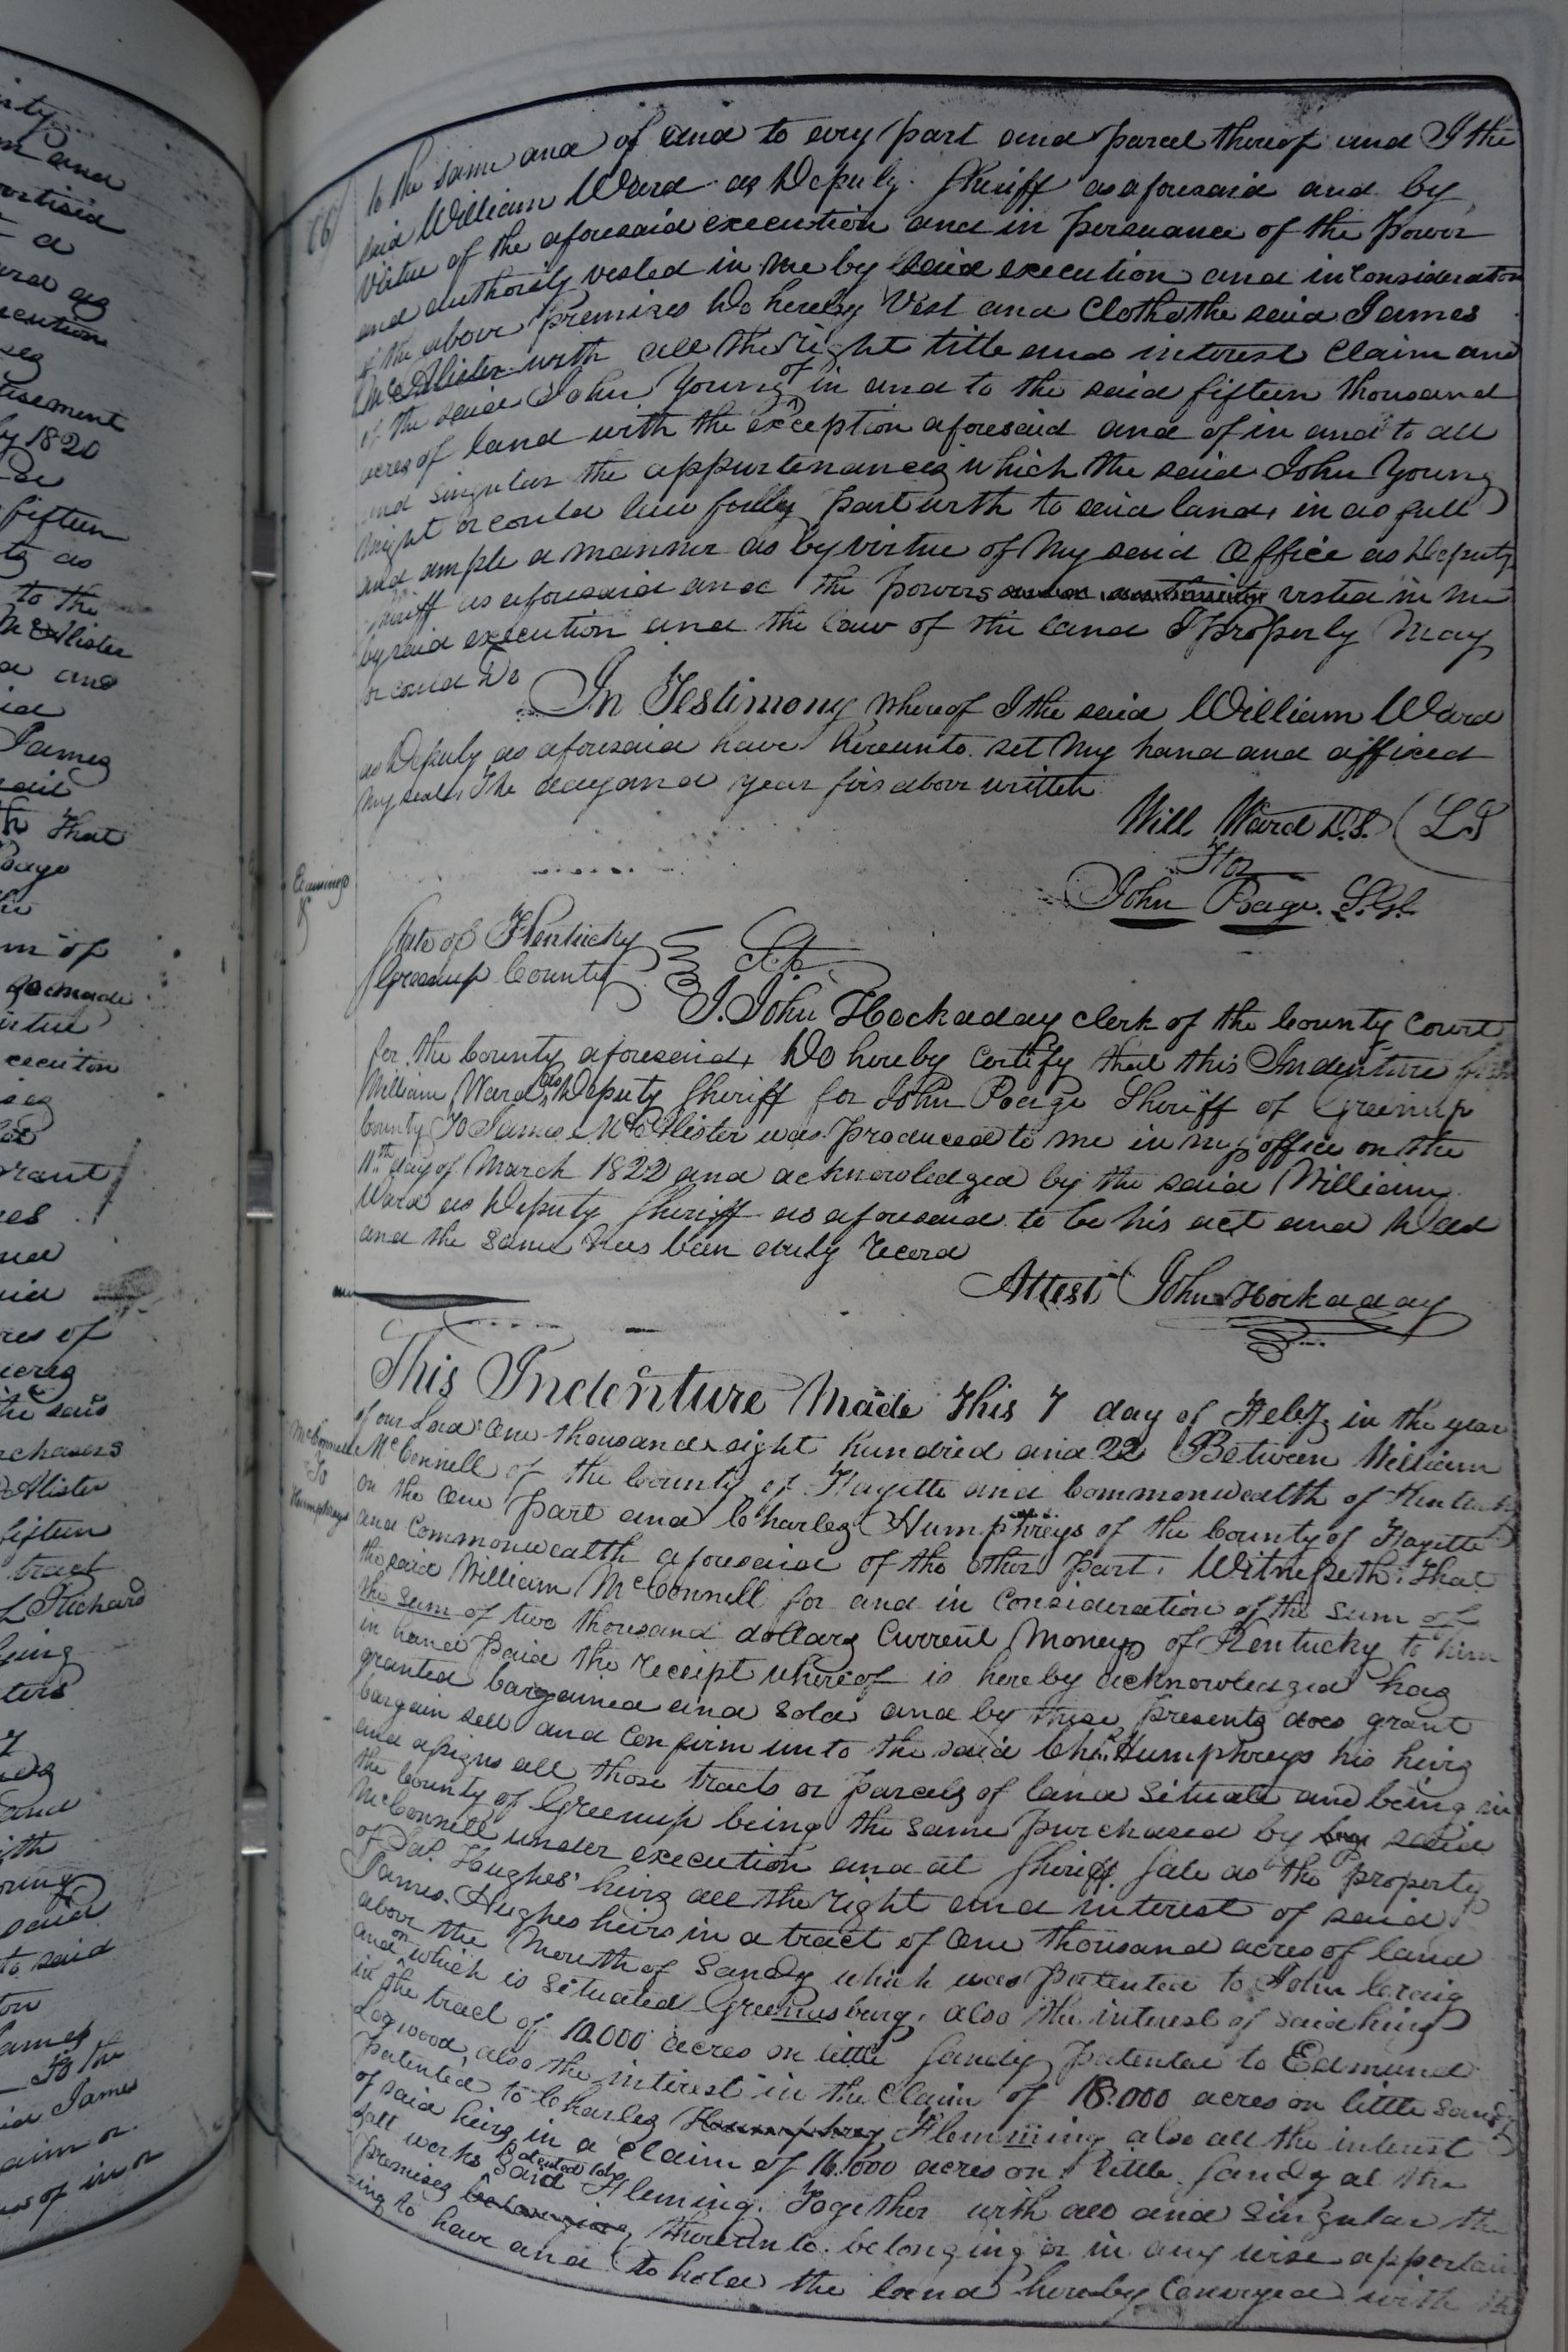 to the same and of and to evry part and parcel thereof and I the
said William Ward as Deputy Sheriff as aforesaid and by
Virtue of the aforesaid execution and in persuance of the Power
and authority vested in me by said execution and in Consideration
of the above Premises Do hereby Vest and Clothe the said James
McAlister with all the right title and interest Claim and
of the said John Young of in and to the said fifteen thousand
acres of land with the exception aforesaid and of in and to all
and singular the appurtenances which the said John Young
might or could law fully part with to said land, in as full
and ample a manner as by virtue of My said Office as Deputy
Sheriff as aforesaid and the powers and authority vested in me
by said execution and the law of the land I Properly May
or could Do
In Testimony whereof I the said William Ward
as Deputy as aforesaid have hereunto set my hand and affixed
my seal, The day and year firs above written
Will Ward D.S. (LS
For
John Poage. S.G.C.
Examined
State of Kentucky
Greenup County Sct.
I. John Hockaday clerk of the County Court
for the County aforesaid, Do hereby certify that this Indenture from
William Ward as Deputy Sheriff for John Poage Sheriff of Greenup
County To James McAlister was Produced to me in my office on the
11th day of March 1822 and acknowledged by the said William
Ward as Deputy Sheriff as aforesaid to be his act and Deed
and the same has been duly record
Attest John Hockaday
This Indenture Made This 7 day of Feby in the year
of our Lord One thousand eight hundred and 22 Between William
McConnell To Humphreys
McConnell of the County of Fayette and Commonwealth of Kentucky
on the One part and Charles Humphreys of the County of Fayette
and Commonwealth aforesaid of the other Part, Witnesseth: That
the said William McConnell for and in Consideration of the sum of
the sum of two thousand dollars Current Money of Kentucky to him
in hand Paid the receipt whereof is hereby acknowledged has
granted bargained and sold and by these presents does grant
bargain sell and confirm unto the said Chs. Humphreys his heirs
and assigns all those tracts or parcels of land situate and being in
the County of Greenup being the same purchased by said
McConnell under execution and at Sheriff Sale as the property
of Jas. Hughes' heirs all the right and interest of said
James Hughes heirs in a tract of One thousand acres of land
above the Mouth of Sandy which was Patented to John Craig
and on which is situated Greenusburg, also the interest of said heirs
in the tract of 10.000 acres on little Sandy patented to Edmund
Logwood, also the interest in the Claim of 18.000 acres on little Sandy
Patented to Charles Humphrey Flemming also all the interest
of said heirs in a Claim of 16.000 acres on little Sandy at the
Salt works Patented to Chs said Fleming. Together with all and singular the
premises belonging thereunto belonging or in any wise appertain
ing to have and to hold the land hereby Conveyed with the